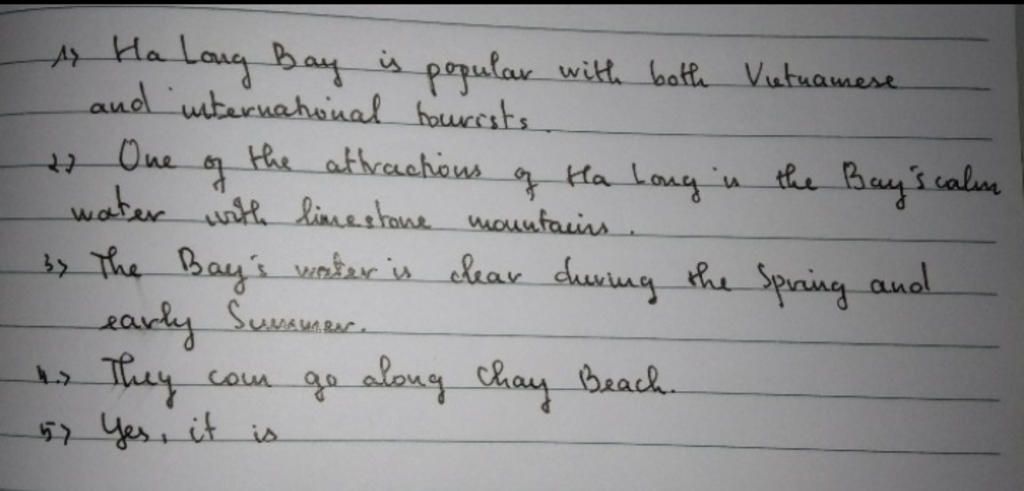 1) Ha Long Bay is popular with both Vietnamese
and international tourists.
2) One of the attractions of Ha Long is the Bay's calm
water with limestone mountains.
3) The Bay's water is clear during the Spring and
early Summer.
4.) They can go along Chay Beach.
5) Yes, it is